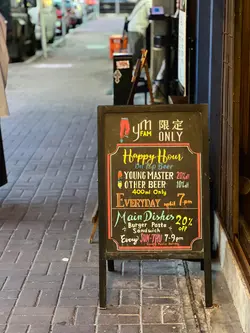 ym
限定
FAM
ONLY
Happy Hour
on Tap Beer
YOUNG MASTER 20%
OTHER BEER 10%
400ml Only
EVERYDAY until 7pm
Main Dishes
Burger Pasta
Sandwich
20%
off
Every SUN-THU 7-9pm